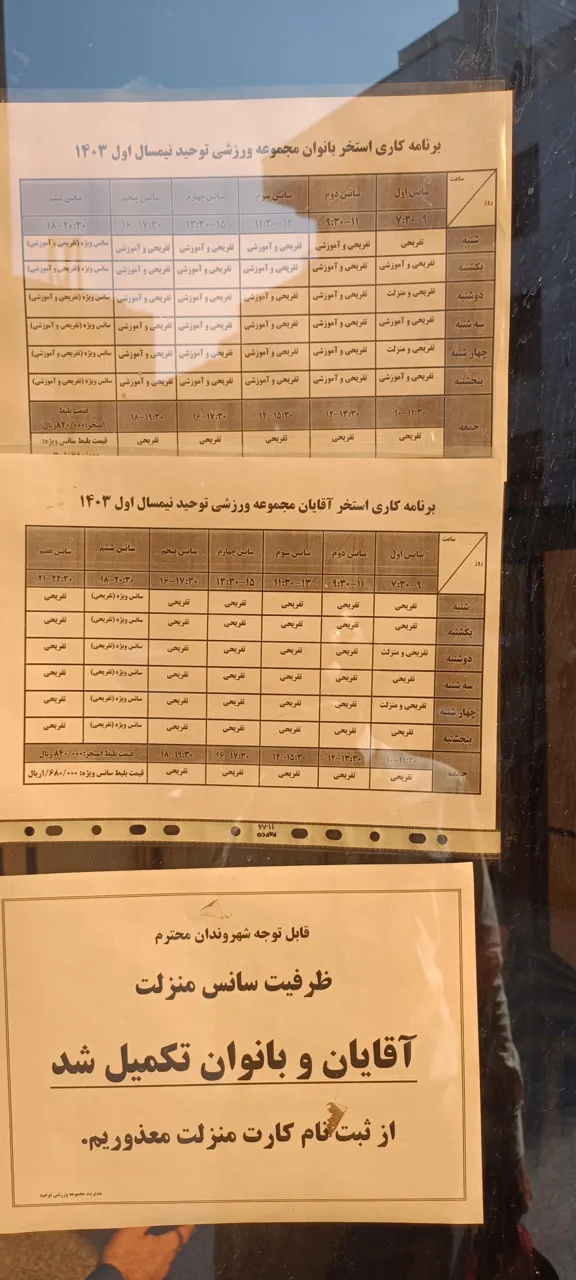 برنامه کاری استخر بانوان مجموعه ورزشی توحید نیمسال اول ۱۴۰۳
ساعت سانس اول سانس دوم سانس سوم سانس چهارم سانس پنجم سانس ششم
روز ۷:۳۰-۹ ۹:۳۰-۱۱ ۱۱:۳۰-۱۳ ۱۳:۳۰-۱۵ ۱۶-۱۷:۳۰ ۱۸-۲۰:۳۰
شنبه تفریحی تفریحی و آموزشی تفریحی و آموزشی تفریحی و آموزشی تفریحی و آموزشی سانس ویژه (تفریحی و آموزشی)
یکشنبه تفریحی و آموزشی تفریحی و آموزشی تفریحی و آموزشی تفریحی و آموزشی تفریحی و آموزشی سانس ویژه (تفریحی و آموزشی)
دوشنبه تفریحی و منزلت تفریحی و آموزشی تفریحی و آموزشی تفریحی و آموزشی تفریحی و آموزشی سانس ویژه (تفریحی و آموزشی)
سه شنبه تفریحی و آموزشی تفریحی و آموزشی تفریحی و آموزشی تفریحی و آموزشی تفریحی و آموزشی سانس ویژه (تفریحی و آموزشی)
چهار شنبه تفریحی و منزلت تفریحی و آموزشی تفریحی و آموزشی تفریحی و آموزشی تفریحی و آموزشی سانس ویژه (تفریحی و آموزشی)
پنجشنبه تفریحی و آموزشی تفریحی و آموزشی تفریحی و آموزشی تفریحی و آموزشی تفریحی و آموزشی سانس ویژه (تفریحی و آموزشی)
جمعه ۱۰-۱۱:۳۰ ۱۲-۱۳:۳۰ ۱۴-۱۵:۳۰ ۱۶-۱۷:۳۰ ۱۸-۱۹:۳۰ قیمت بلیط استخر:۸۴۰/۰۰۰ریال
تفریحی تفریحی تفریحی تفریحی تفریحی قیمت بلیط سانس ویژه:
برنامه کاری استخر آقایان مجموعه ورزشی توحید نیمسال اول ۱۴۰۳
ساعت سانس اول سانس دوم سانس سوم سانس چهارم سانس پنجم سانس ششم سانس هفتم
روز ۷:۳۰-۹ ۹:۳۰-۱۱ ۱۱:۳۰-۱۳ ۱۳:۳۰-۱۵ ۱۶-۱۷:۳۰ ۱۸-۲۰:۳۰ ۲۱-۲۲:۳۰
شنبه تفریحی تفریحی تفریحی تفریحی تفریحی سانس ویژه (تفریحی) تفریحی
یکشنبه تفریحی تفریحی تفریحی تفریحی تفریحی سانس ویژه (تفریحی) تفریحی
دوشنبه تفریحی و منزلت تفریحی تفریحی تفریحی تفریحی سانس ویژه (تفریحی) تفریحی
سه شنبه تفریحی تفریحی تفریحی تفریحی تفریحی سانس ویژه (تفریحی) تفریحی
چهار شنبه تفریحی و منزلت تفریحی تفریحی تفریحی تفریحی سانس ویژه (تفریحی) تفریحی
پنجشنبه تفریحی تفریحی تفریحی تفریحی تفریحی سانس ویژه (تفریحی) تفریحی
جمعه ۱۰-۱۱:۳۰ ۱۲-۱۳:۳۰ ۱۴-۱۵:۳۰ ۱۶-۱۷:۳۰ ۱۸-۱۹:۳۰ قیمت بلیط استخر: ۸۴۰/۰۰۰ ریال
تفریحی تفریحی تفریحی تفریحی تفریحی قیمت بلیط سانس ویژه: ۱/۶۸۰/۰۰۰ریال
PAPCO
11-A4
قابل توجه شهروندان محترم
ظرفیت سانس منزلت
آقایان و بانوان تکمیل شد
از ثبت نام کارت منزلت معذوریم.
مدیریت مجموعه ورزشی توحید